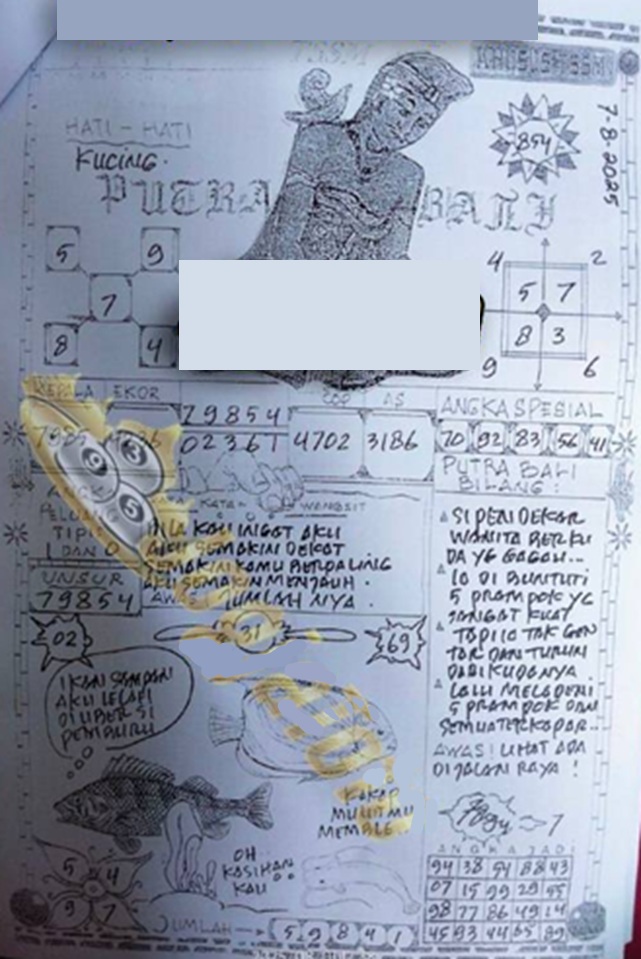 KHUSUS HSSM
7-8-2025
HATI - HATI
KUCING.
854
PUTRA BALI
5 9
7
8 4
4 2
5 7
8 3
9 6
KEPALA EKOR
COP AS
ANGKA SPESIAL
79854
02361
4702 3186
70 92 83 56 41
9 3 5
PUTRA BALI
BILANG :
KATA - WANGSIT
JIKA KAU INGAT AKU
AKU SEMAKIN DEKAT
SEMAKIN KAMU BERPALING
AKU SEMAKIN MENJAUH.
AWAS JUMLAH NYA.
UNSUR
79854
SI PENDEKAR
WANITA BERKU
DA YG GAGAH...
IA DI BUNTUTI
5 PRAMPOK YG
SANGAT KUAT
TAPI IA TAK GEN
TAR DAN TURUN
DARI KUDANYA.
LALU MELADENI
5 PRAMPOK DAN
SEMUA TERKAPAR...
AWAS! LIHAT ADA
DI JALAN RAYA !
02 31 69
AKU LELAH
DI UBER SI
PEMBURU
KAKAP
MULUTMU
MEMBLE...
OH
KASIHAN
KAU
7
5 4
9 7
JUMLAH → 5 9 8 4 1
ANGKA JADI
94 38 54 88 43
07 15 99 29 55
98 77 86 49 14
45 93 44 65 89